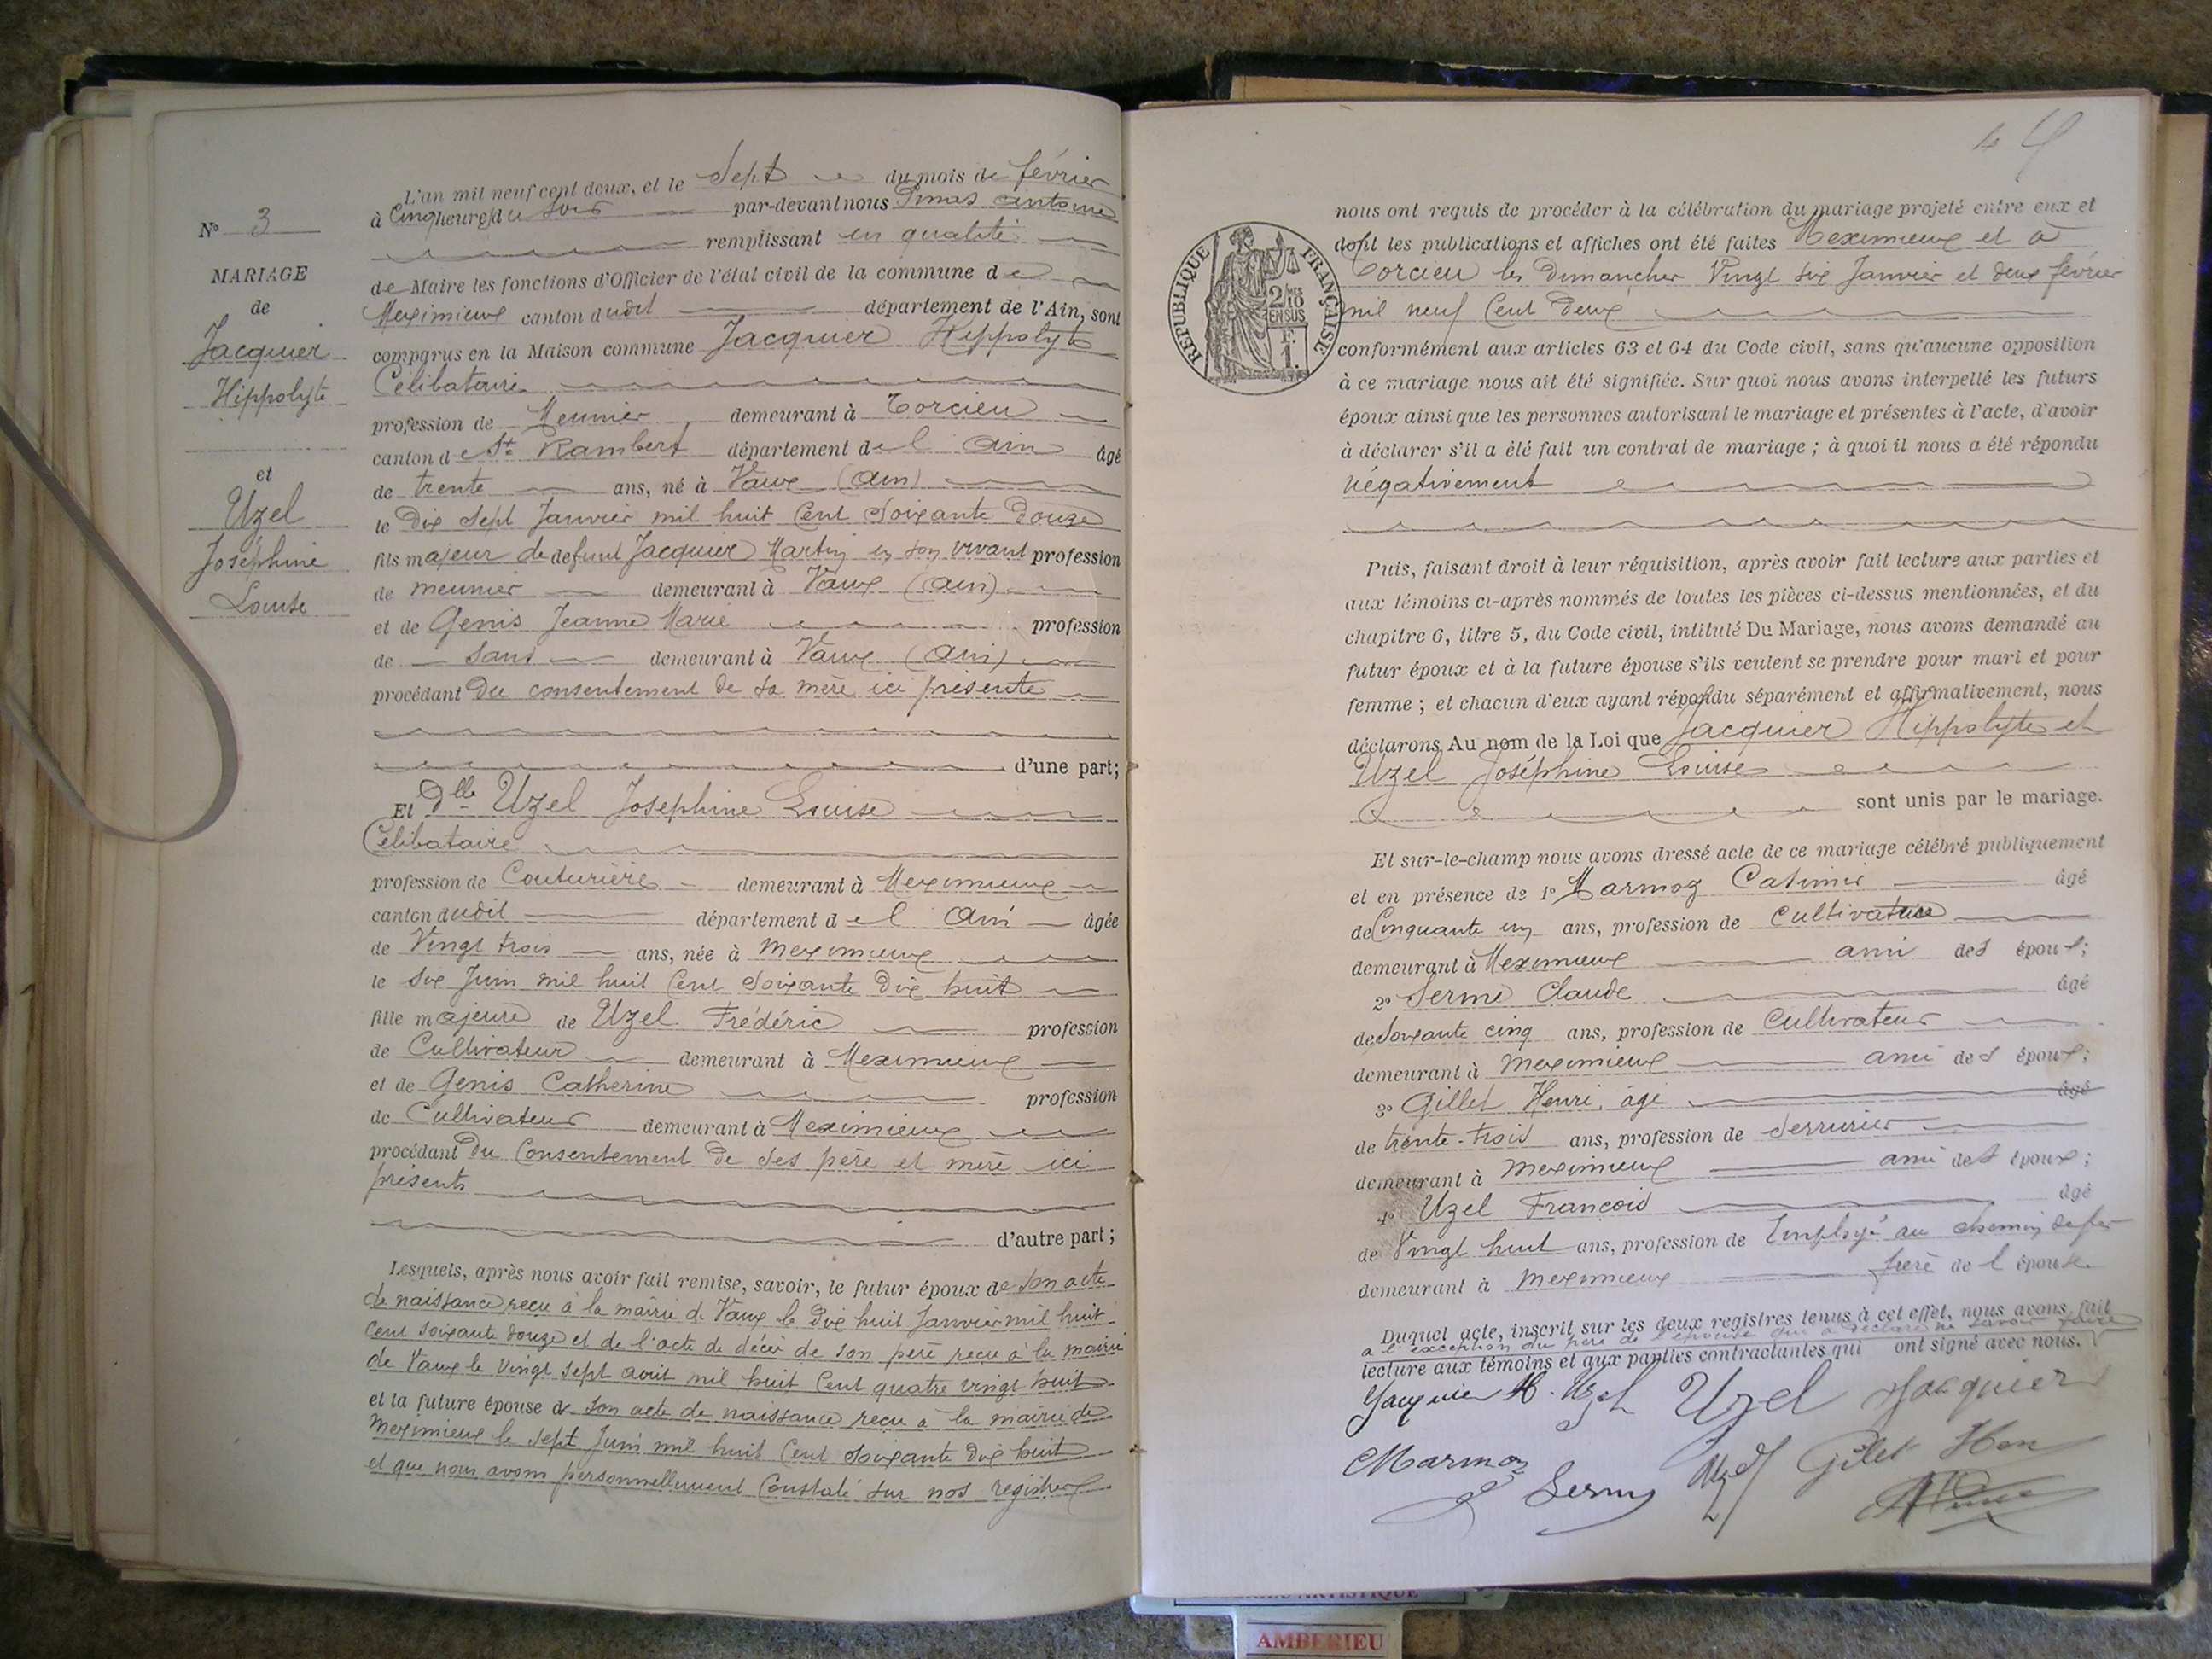 N° 3
MARIAGE
de
Jacquier
Hippolyte
et
Uzel
Joséphine
Louise
L'an mil neuf cent deux, et le Sept du mois de février
à Cinq heures du soir par-devant nous Dimas Antoine
remplissant en qualité
de Maire les fonctions d'Officier de l'état civil de la commune de
Meximieux canton dudit département de l'Ain, sont
comparus en la Maison commune Jacquier Hippolyte
Célibataire
profession de Meunier demeurant à Torcieu
canton de St Rambert département de l'Ain âgé
de trente ans, né à Vaux (Ain)
le Dix Sept Janvier mil huit Cent Soixante Douze
fils majeur de defunt Jacquier Martin en son vivant profession
de meunier demeurant à Vaux (Ain)
et de Genis Jeanne Marie profession
de sans demeurant à Vaux (Ain)
procédant Du consentement de sa mère ici présente
d'une part;
Et Dlle Uzel Josephine Louise
Célibataire
profession de Couturière demeurant à Meximieux
canton dudit département de l'Ain âgée
de Vingt trois ans, née à Meximieux
le six Juin mil huit Cent Soixante Dix huit
fille majeure de Uzel Frédéric profession
de Cultivateur demeurant à Meximieux
et de Genis Catherine profession
de Cultivateur demeurant à Meximieux
procédant Du Consentement de ses père et mère ici
présents
d'autre part;
Lesquels, après nous avoir fait remise, savoir, le futur époux de son acte
de naissance reçu à la mairie de Vaux le Dix huit Janvier mil huit
Cent soixante douze et de l'acte de décès de son père reçu à la mairie
de Vaux le vingt sept avril mil huit Cent quatre vingt huit
et la future épouse de son acte de naissance reçu à la mairie de
Meximieux le sept Juin mil huit Cent Soixante Dix huit
et que nous avons personnellement Constaté sur nos registres
4
RÉPUBLIQUE FRANÇAISE
2/10 EN SUS
F. 1.
nous ont requis de procéder à la célébration du mariage projeté entre eux et
dont les publications et affiches ont été faites Meximieux et à
Torcieu les Dimanches Vingt six Janvier et deux février
mil neuf Cent Deux
conformément aux articles 63 et 64 du Code civil, sans qu'aucune opposition
à ce mariage nous ait été signifiée. Sur quoi nous avons interpellé les futurs
époux ainsi que les personnes autorisant le mariage et présentes à l'acte, d'avoir
à déclarer s'il a été fait un contrat de mariage ; à quoi il nous a été répondu
négativement
Puis, faisant droit à leur réquisition, après avoir fait lecture aux parties et
aux témoins ci-après nommés de toutes les pièces ci-dessus mentionnées, et du
chapitre 6, titre 5, du Code civil, intitulé Du Mariage, nous avons demandé au
futur époux et à la future épouse s'ils veulent se prendre pour mari et pour
femme ; et chacun d'eux ayant répondu séparément et affirmativement, nous
déclarons Au nom de la Loi que Jacquier Hippolyte et
Uzel Joséphine Louise
sont unis par le mariage.
Et sur-le-champ nous avons dressé acte de ce mariage célébré publiquement
et en présence de 1° Marmoz Casimir âgé
de Cinquante un ans, profession de Cultivateur
demeurant à Meximieux ami des époux;
2° Serme Claude âgé
de Soixante cinq ans, profession de Cultivateur
demeurant à Meximieux ami des époux;
3° Gillet Henri, âgé âgé
de trente-trois ans, profession de Serrurier
demeurant à Meximieux ami des époux;
4° Uzel François âgé
de Vingt huit ans, profession de Employé au chemin de fer
demeurant à Meximieux frère de l'épouse.
Duquel acte, inscrit sur les deux registres tenus à cet effet, nous avons fait
à l'exception du père de l'épouse qui a déclaré ne savoir faire
lecture aux témoins et aux parties contractantes qui ont signé avec nous.
Jacquier H. Uzel Uzel Jacquier
Marmoz Serme Uzel Gilet Hen
AMBERIEU